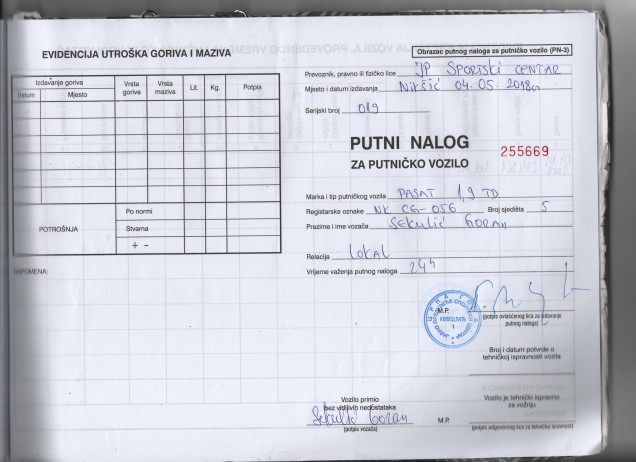 EVIDENCIJA UTROŠKA GORIVA I MAZIVA
Izdavanje goriva
Datum
Mjesto
Vrsta goriva
Vrsta maziva
Lit.
Kg.
Potpis
POTROŠNJA
Po normi
Stvarna
+ -
NAPOMENA:
Obrazac putnog naloga za putničko vozilo (PN-3)
Prevoznik, pravno ili fizičko lice JP SPORTSKI CENTAR
Mjesto i datum izdavanja Nikšić 04.05.2018
Serijski broj 019
PUTNI NALOG
ZA PUTNIČKO VOZILO
255669
Marka i tip putničkog vozila PASAT 1,9 TD
Registarske oznake NK CG-056 Broj sjedišta 5
Prezime i ime vozača Sekulić Goran
Relacija lokal
Vrijeme važenja putnog naloga 24h
M.P.
(potpis ovlašćenog lica za izdavanje
putnog naloga)
Broj i datum potvrde o
tehničkoj ispravnosti vozila
Vozilo primio
bez vidljivih nedostataka
Sekulić Goran
(potpis vozača)
M.P.
Vozilo je tehnički ispravno
za vožnju
(potpis odgovornog lica za tehničku ispravnost)